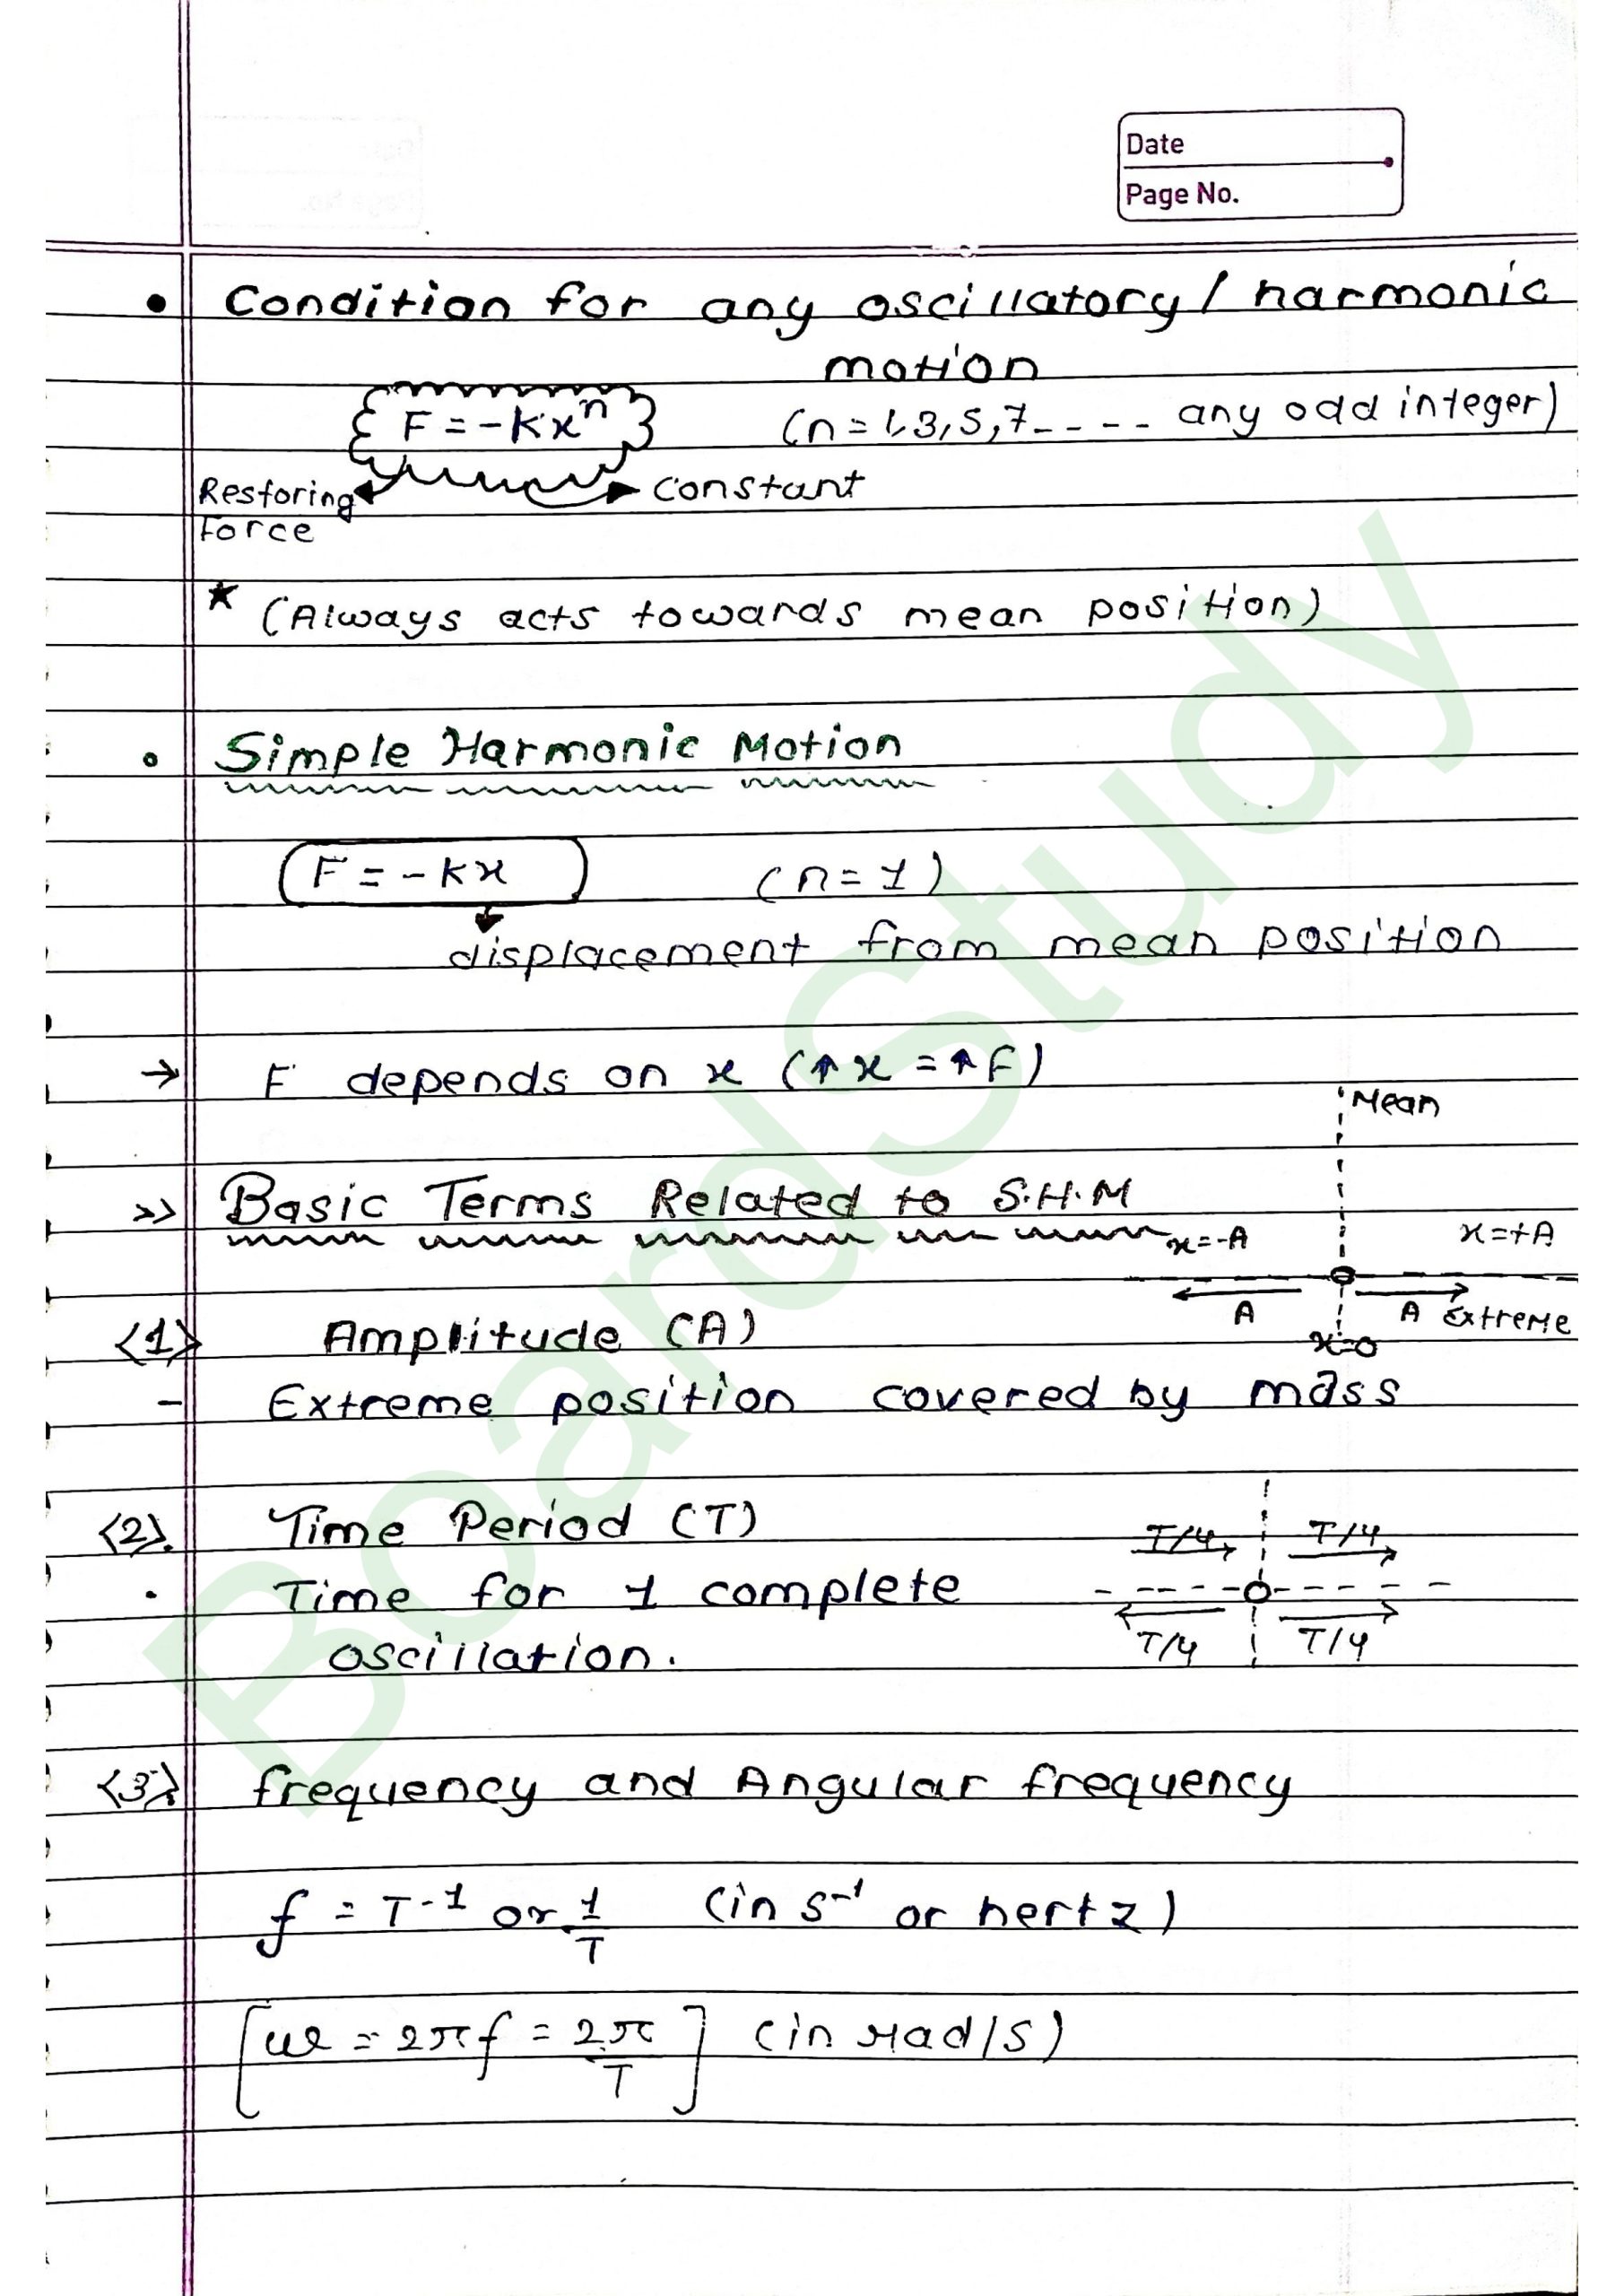 Date
Page No.
• Condition for any oscillatory / harmonic
motion
F = -Kxⁿ (n = 1,3,5,7- - - - any odd integer)
Restoring Force
constant
★ (Always acts towards mean position)
• Simple Harmonic Motion
F = -Kx (n = 1)
displacement from mean position
→ F depends on x (↑x = ↑F)
Mean
>> Basic Terms Related to S.H.M
x=-A x=+A
A A Extreme
x=0
<1> Amplitude (A)
- Extreme position covered by mass
<2>. Time Period (T)
T/4 T/4
• Time for 1 complete
T/4 T/4
oscillation.
<3> frequency and Angular frequency
f = T-1 or 1/T (in s⁻¹ or hertz)
[ω = 2πf = 2π/T] (in rad/s)
BoardStudy